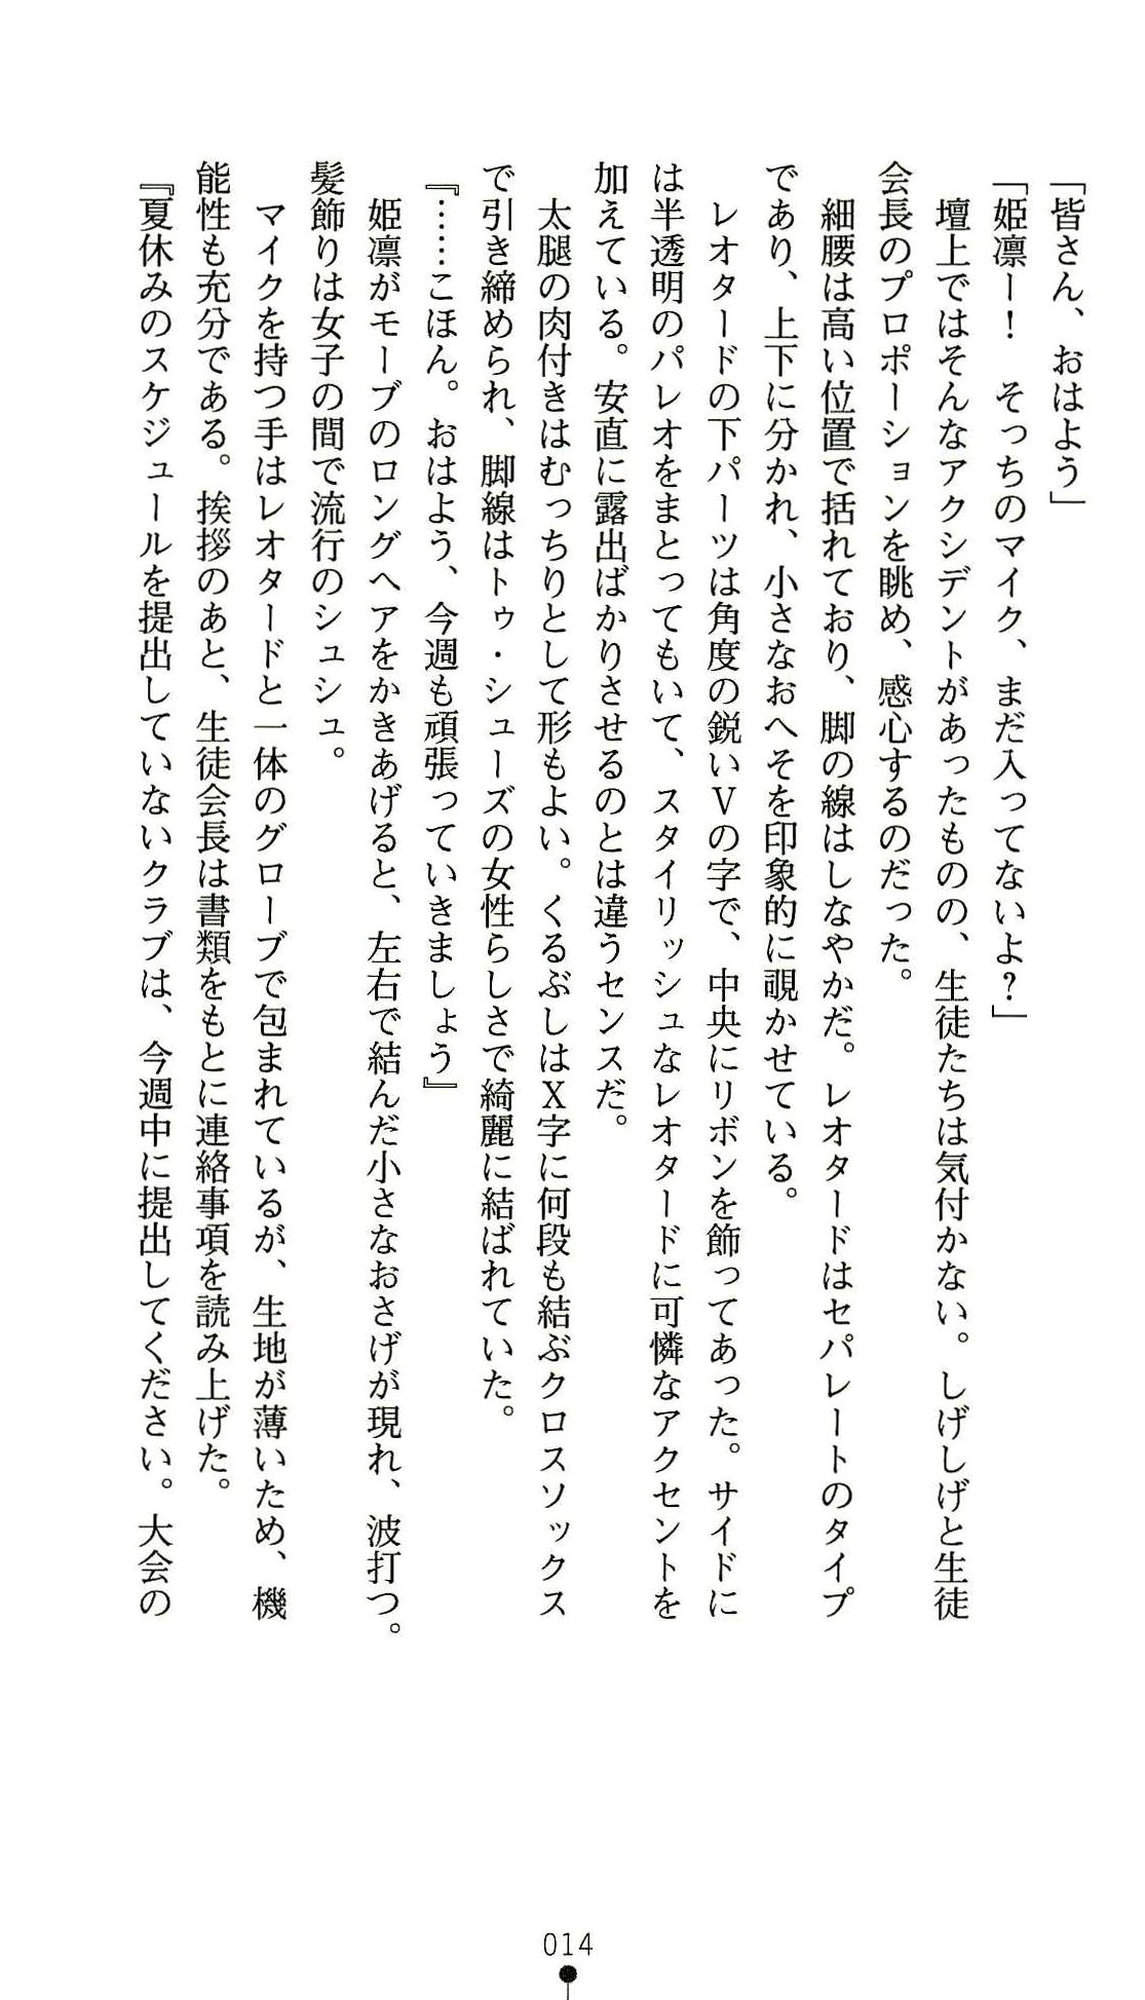 「皆さん、おはよう」
「姫凛ー！　そっちのマイク、まだ入ってないよ？」
　壇上ではそんなアクシデントがあったものの、生徒たちは気付かない。しげしげと生徒
会長のプロポーションを眺め、感心するのだった。
　細腰は高い位置で括れており、脚の線はしなやかだ。レオタードはセパレートのタイプ
であり、上下に分かれ、小さなおへそを印象的に覗かせている。
　レオタードの下パーツは角度の鋭いＶの字で、中央にリボンを飾ってあった。サイドに
は半透明のパレオをまとってもいて、スタイリッシュなレオタードに可憐なアクセントを
加えている。安直に露出ばかりさせるのとは違うセンスだ。
　太腿の肉付きはむっちりとして形もよい。くるぶしはＸ字に何段も結ぶクロスソックス
で引き締められ、脚線はトゥ・シューズの女性らしさで綺麗に結ばれていた。
『……こほん。おはよう、今週も頑張っていきましょう』
　姫凛がモーブのロングヘアをかきあげると、左右で結んだ小さなおさげが現れ、波打つ。
髪飾りは女子の間で流行のシュシュ。
　マイクを持つ手はレオタードと一体のグローブで包まれているが、生地が薄いため、機
能性も充分である。挨拶のあと、生徒会長は書類をもとに連絡事項を読み上げた。
『夏休みのスケジュールを提出していないクラブは、今週中に提出してください。大会の
014